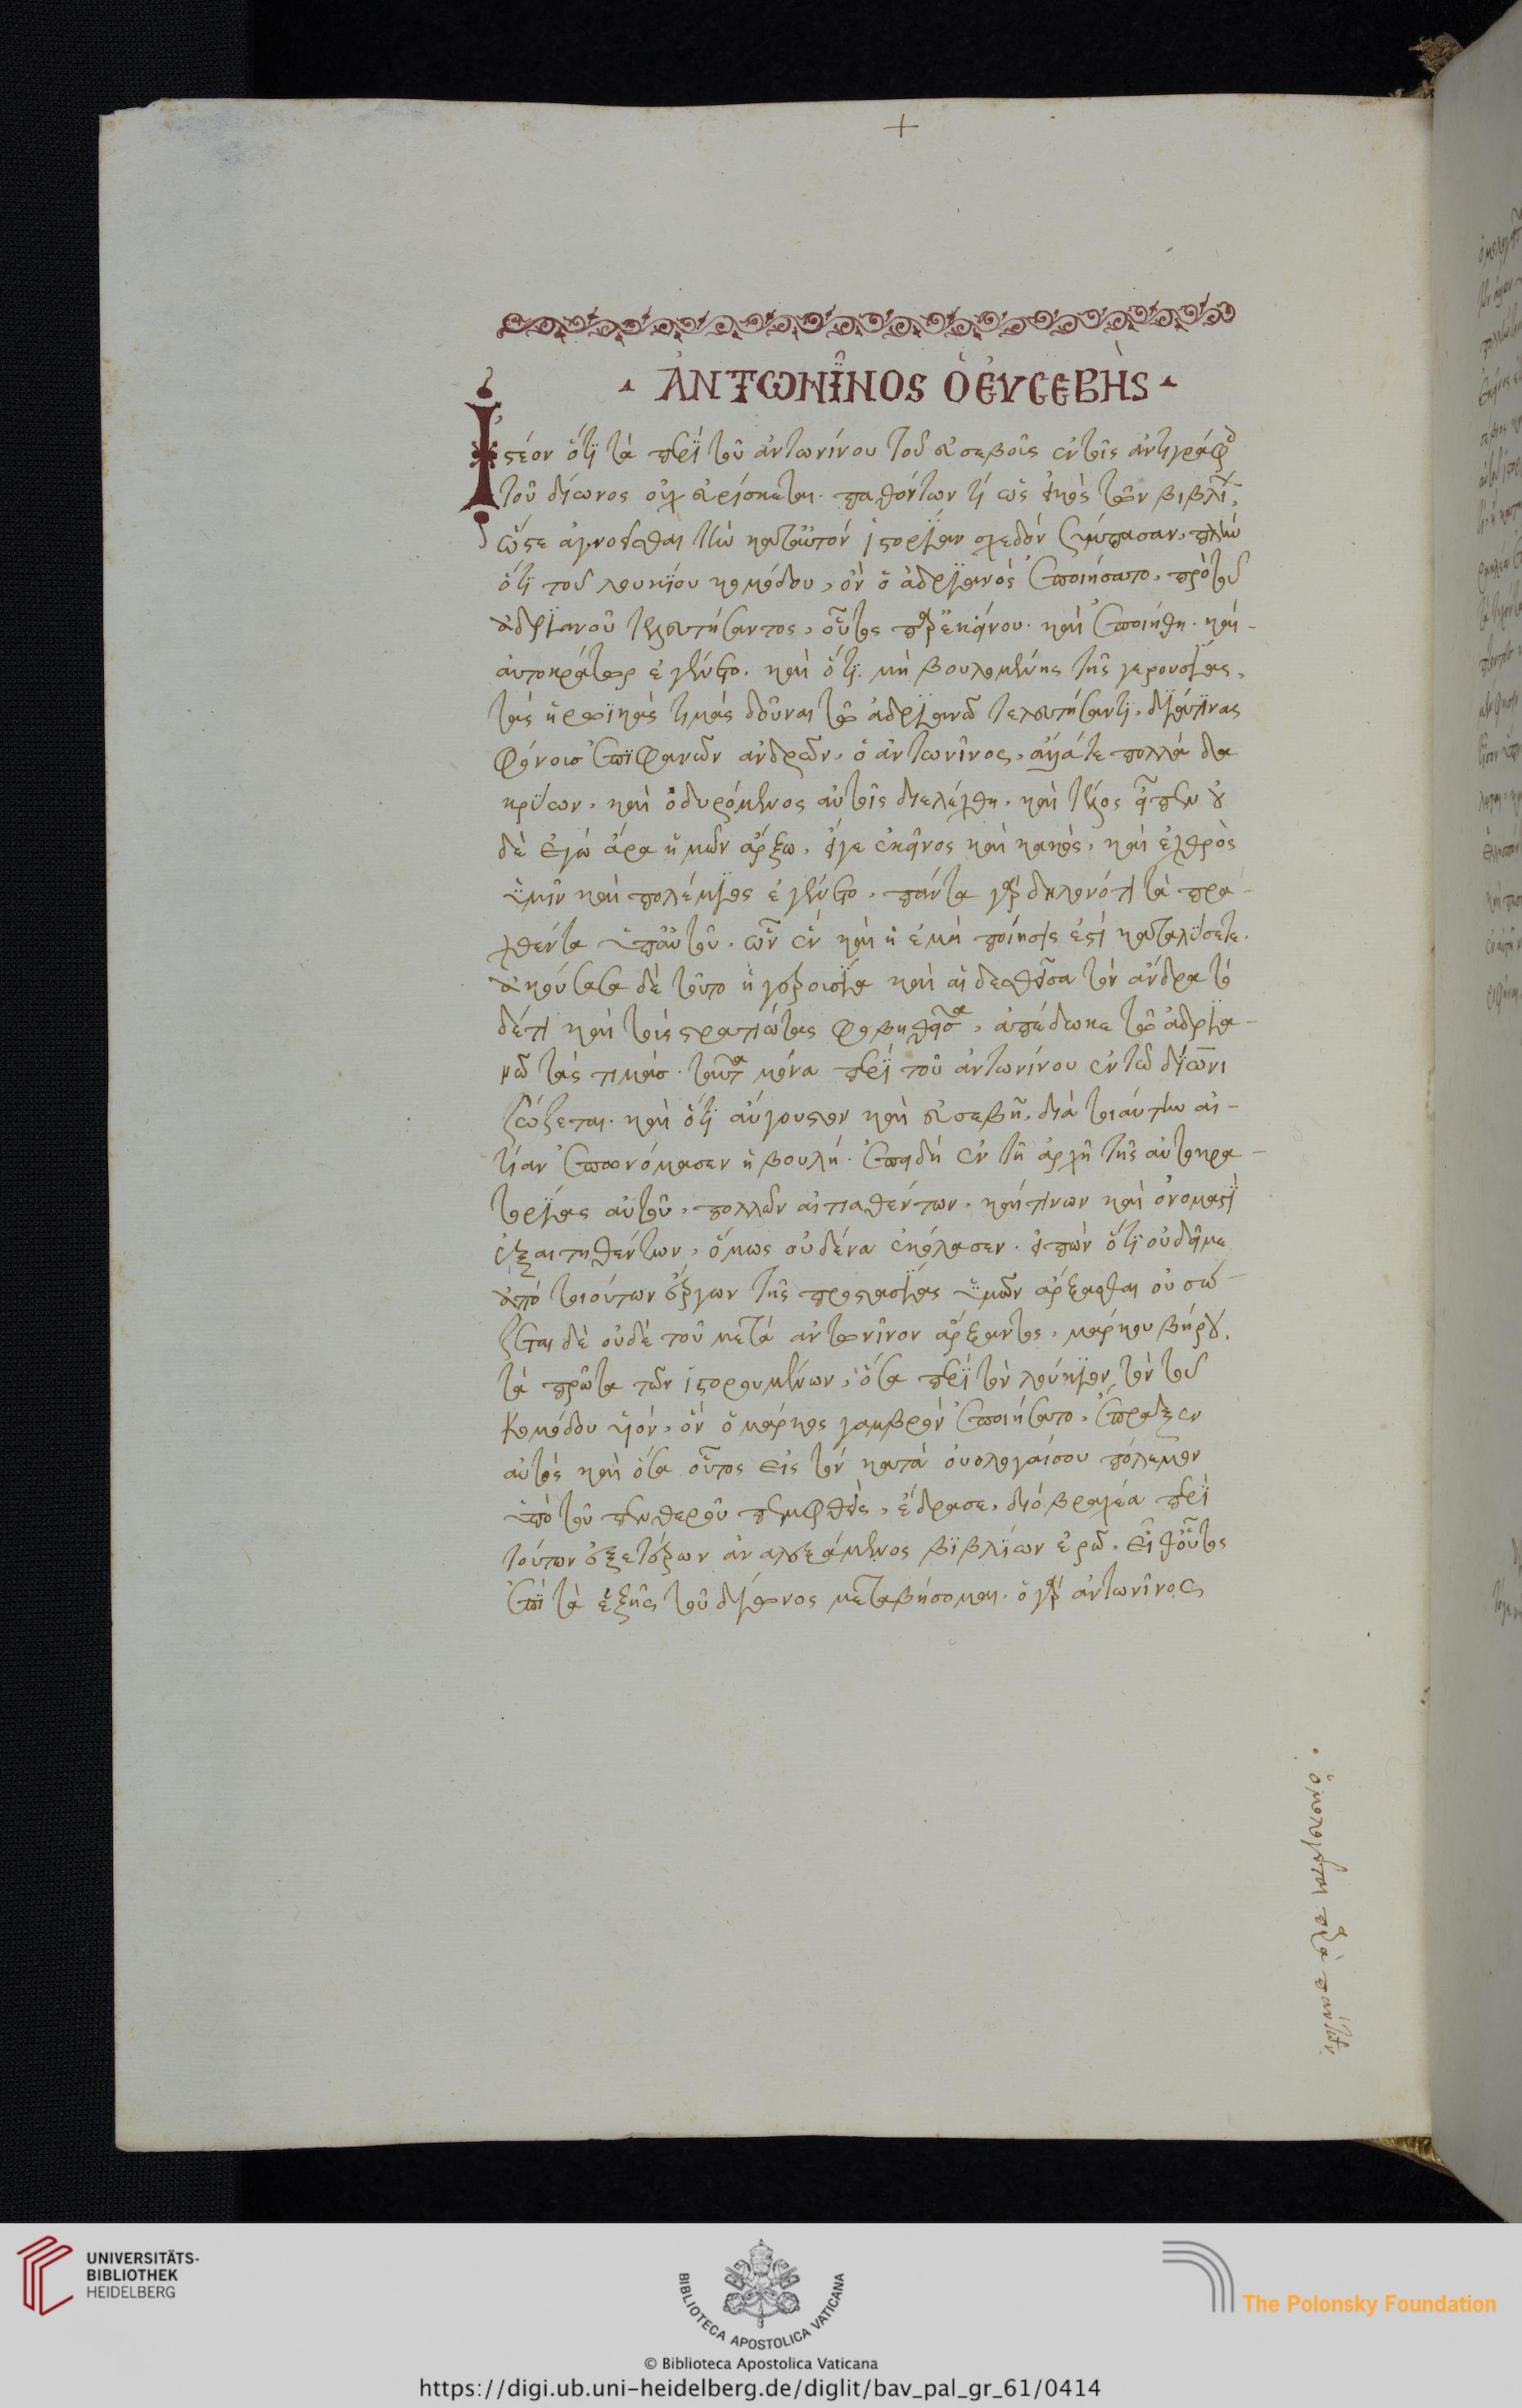 +
· ἈΝΤΩΝΪ͂ΝΟΣ Ὁ ΕὐΣΕΒῊΣ ·
Ἰστέον ὅτι τὰ περὶ τοῦ ἀντωνίνου τοῦ εὐσεβοῦς ἐν τοῖς ἀντιγράφοις
τοῦ δίωνος οὐχ εὑρίσκεται. παθόντων τί ὡς εἰκὸς τῶν βιβλίων,
ὥστε ἀγνοεῖσθαι τὴν κατ αὐτὸν ἱστορίαν σχεδὸν σύμπασαν, πλὴν
ὅτι τοῦ λουκίου κομόδου, ὃν ὁ ἀδριανὸς ἐποιήσατο, πρὸ τοῦ
ἀδριανοῦ τελευτήσαντος, οὗτος παρ ἐκείνου καὶ ἐποιήθη. καὶ
αὐτοκράτωρ ἐγένετο. καὶ ὅτι μὴ βουλομένης τῆς γερουσίας,
τὰς ἡρωϊκὰς τιμὰς δοῦναι τῶ ἀδριανῶ τελευτήσαντι, διά τινας
φόνους ἐπιφανῶν ἀνδρῶν, ὁ ἀντωνῖνος, ἄλλα τε πολλὰ δα
κρύων, καὶ ὀδυρόμενος αὐτοῖς διελέχθη, καὶ τέλος εἶπεν οὐ
δὲ ἐγὼ ἄρα ὑμῶν ἄρξω, εἴγε ἐκεῖνος καὶ κακὸς, καὶ ἐχθρὸς
ὑμῖν καὶ πολέμιος ἐγένετο, πάντα γὰρ δηλονότι τὰ πρα
χθέντα ὑπ αὐτοῦ, ὧν ἓν καὶ ἡ ἐμὴ ποίησις ἐστὶ καταλύσετε.
ἀκούσασα δὲ τοῦτο ἡ γερουσία καὶ αἰδεσθεῖσα τὸν ἄνδρα τὸ
δέ τι καὶ τοὺς στρατιώτας φοβηθεῖσα, ἀπέδωκε τῶ ἀδρια
νῶ τὰς τιμάς. ταῦτα μόνα περὶ τοῦ ἀντωνίνου ἐν τῶ δίωνι
σώζεται. καὶ ὅτι αὔγουστον καὶ εὐσεβῆ, διὰ τοιαύτην αἰ
τίαν ἐπωνόμασεν ἡ βουλή. ἐπειδὴ ἐν τῆ ἀρχῆ τῆς αὐτοκρα
τορίας αὐτοῦ, πολλῶν αἰτιαθέντων, καί τινων καὶ ὀνομαστὶ
ἐξαιτηθέντων, ὅμως οὐδένα ἐκόλασεν. εἰπὼν ὅτι οὐ δεῖ με
ἀπὸ τοιούτων ἔργων τῆς προστασίας ὑμῶν ἄρξασθαι οὐ σώ
ζεται δὲ οὐδὲ τοῦ μετὰ ἀντωνῖνον ἄρξαντος, μάρκου βήρου,
τὰ πρῶτα τῶν ἱστορουμένων, ὅσα περὶ τὸν λούκιον τὸν τοῦ
κομόδου υἱόν, ὃν ὁ μάρκος γαμβρὸν ἐποιήσατο, ἔπραξεν
αὐτὸς καὶ ὅσα οὗτος εἰς τὸν κατὰ οὐολογαίσου πόλεμον
ὑπὸ τοῦ πενθεροῦ πεμφθεὶς, ἔδρασε, διὸ βραχέα περὶ
τούτων ἐξ ἑτέρων ἀναλεξάμενος βιβλίων ἐρῶ. εἶθ οὕτως
ἐπὶ τὰ ἑξῆς τοῦ δίωνος μεταβήσομαι. ὁ γὰρ ἀντωνῖνος
ὁμολογεῖται παρὰ πάντων
UNIVERSITÄTS-
BIBLIOTHEK
HEIDELBERG
BIBLIOTECA APOSTOLICA VATICANA
The Polonsky Foundation
© Biblioteca Apostolica Vaticana
https://digi.ub.uni-heidelberg.de/diglit/bav_pal_gr_61/0414